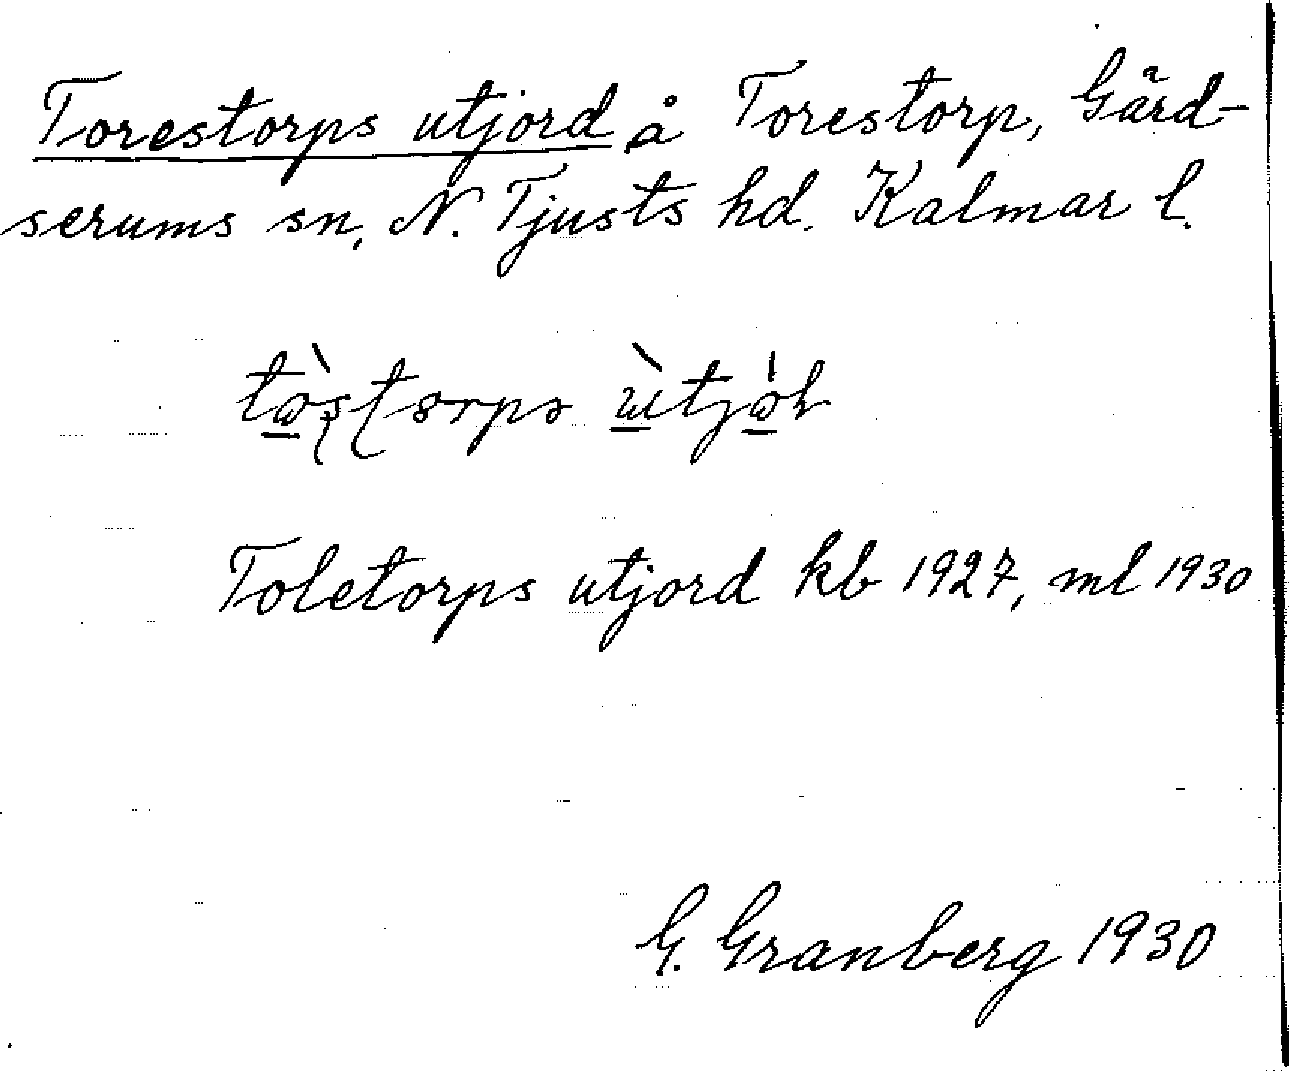 Torestorps utjord å Torestorp, Gärd-
serums sn, N. Tjusts hd. Kalmar l.
Toletorps utjord kb 1927, ml 1930
G. Granberg 1930